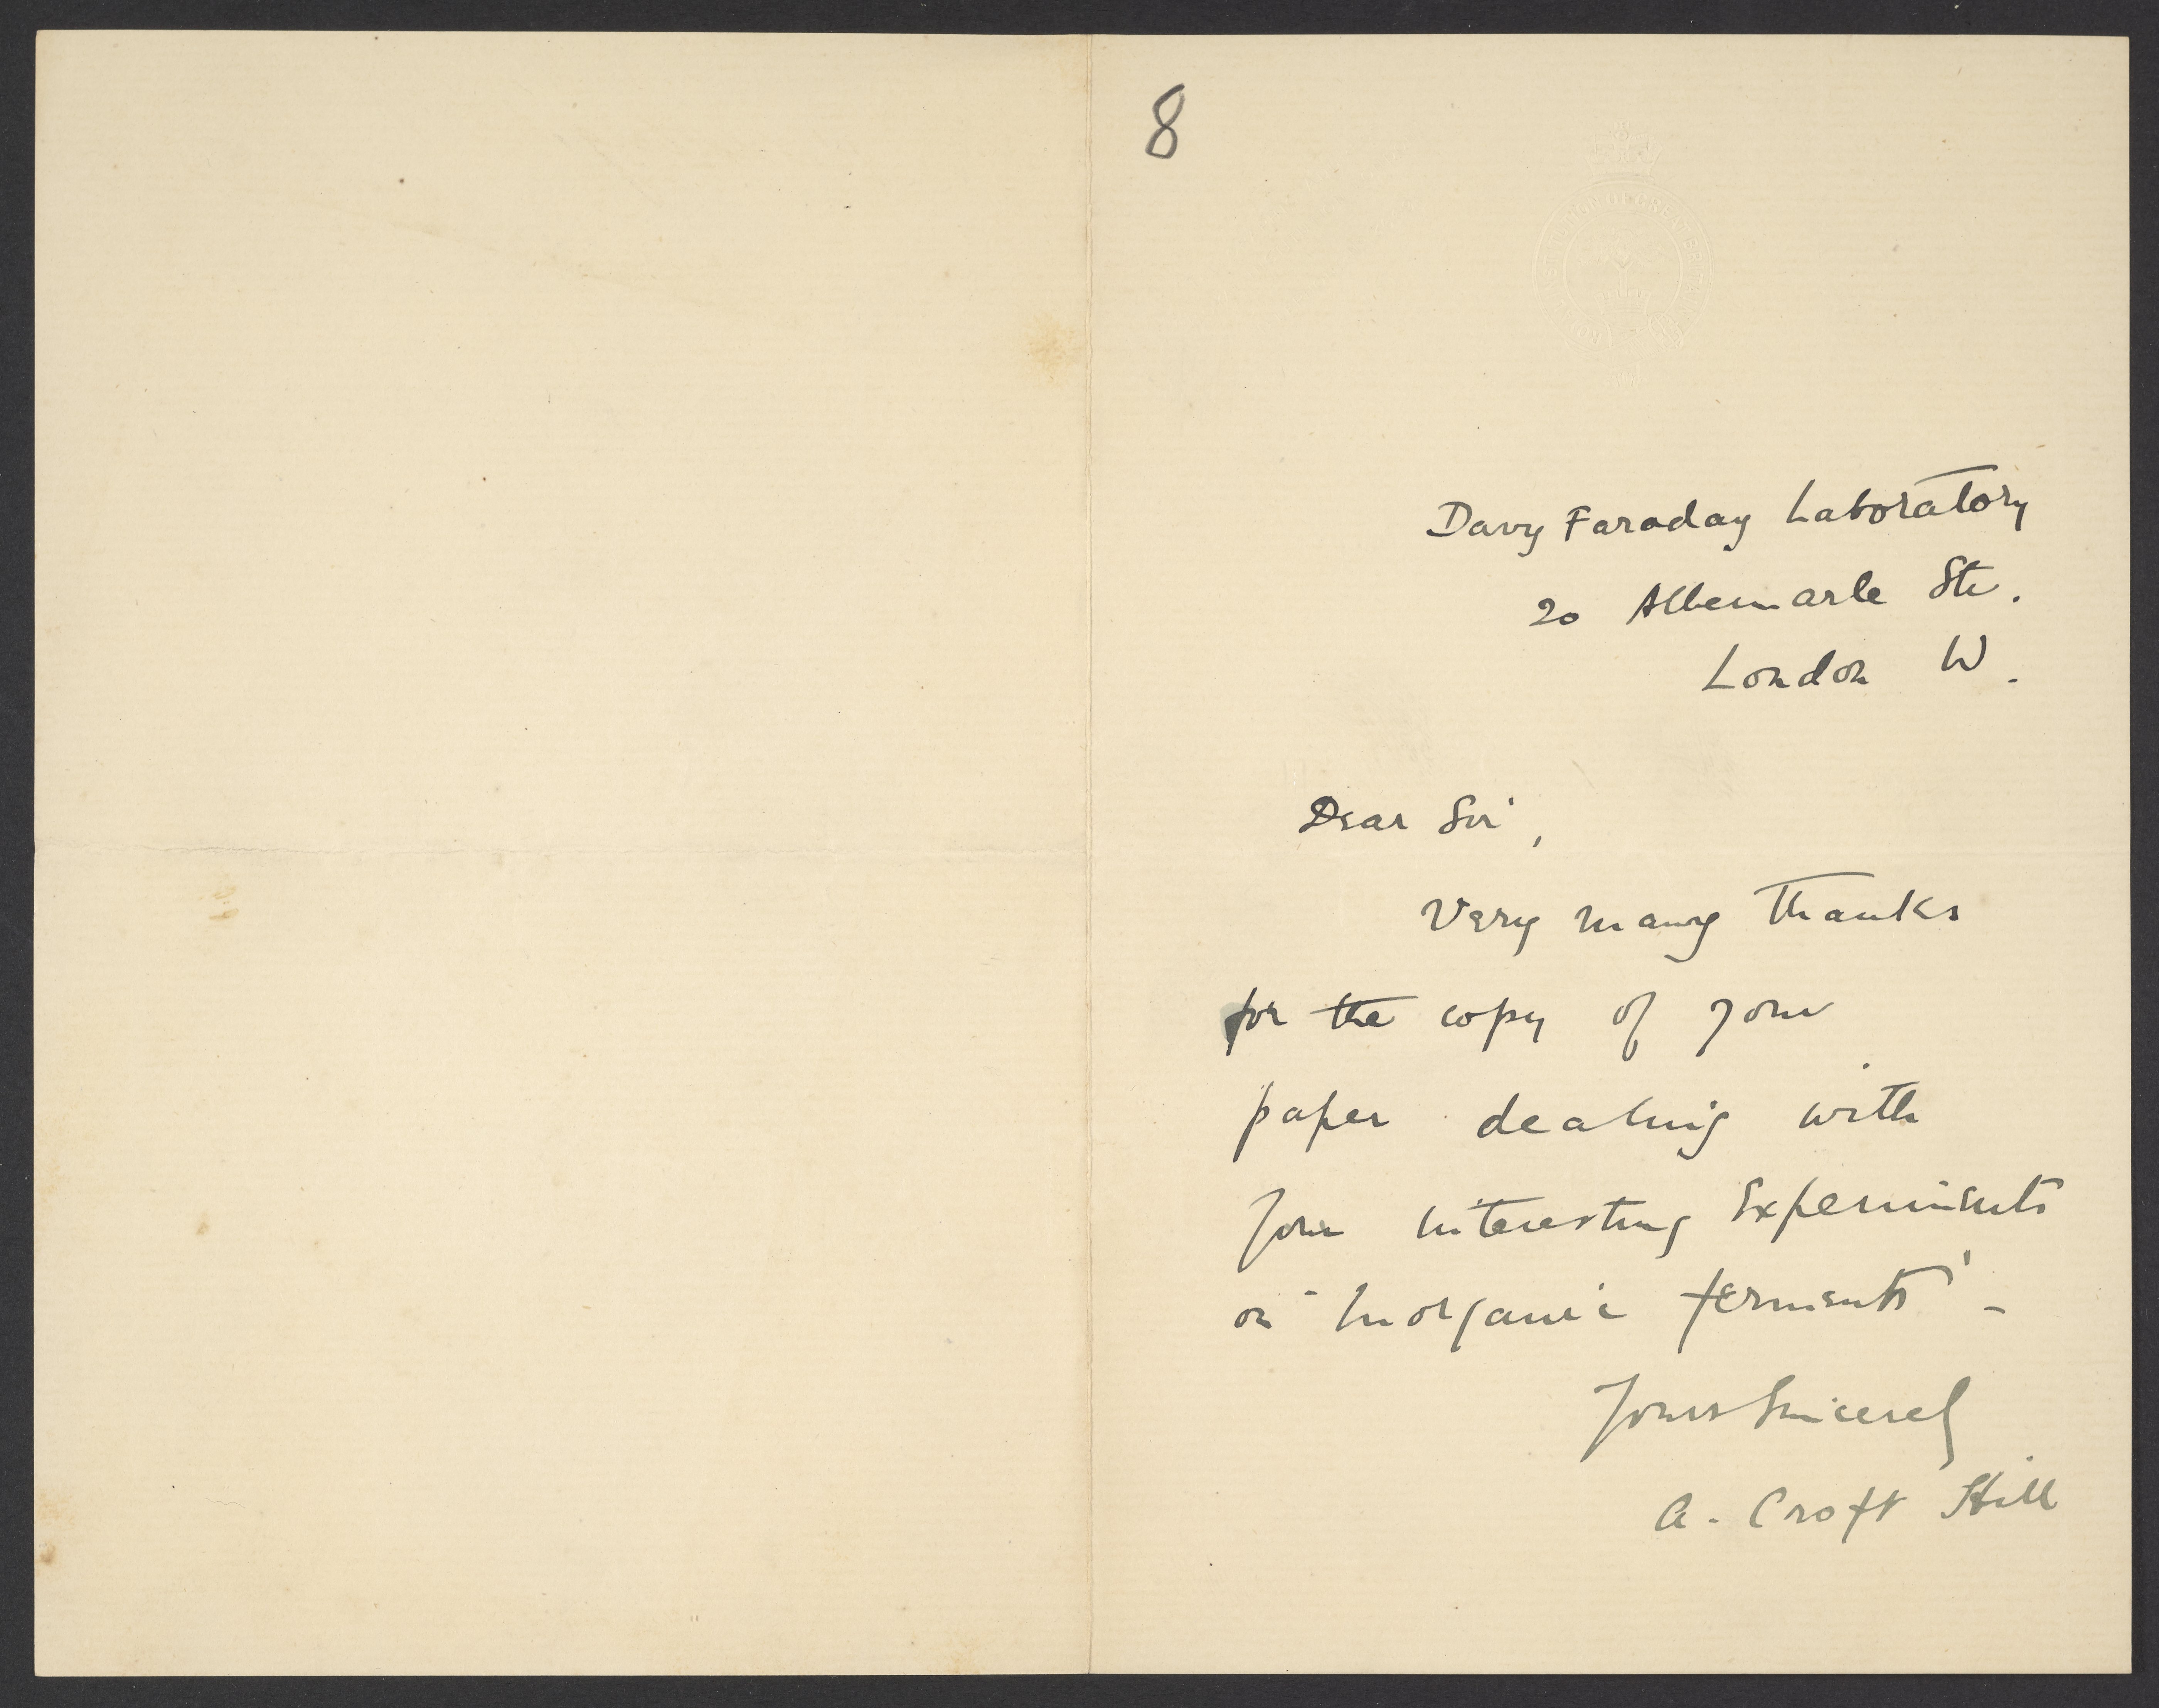 8
ROYAL INSTITUTION OF GREAT BRITAIN
Davy Faraday Laboratory
20 Albemarle Str.
London W.
Dear Sir,
Very many thanks
for the copy of your
paper dealing with
your interesting experiments
on "Inorganic ferments" -
Yours sincerely
A. Croft Hill